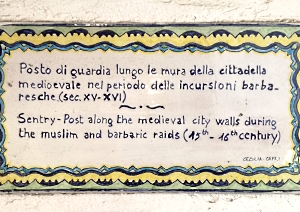 Posto di guardia lungo le mura della cittadella
medioevale nel periodo delle incursioni barba-
resche (sec. XV-XVI)
Sentry-Post along the medieval city walls during
the muslim and barbaric raids (15th - 16th century)